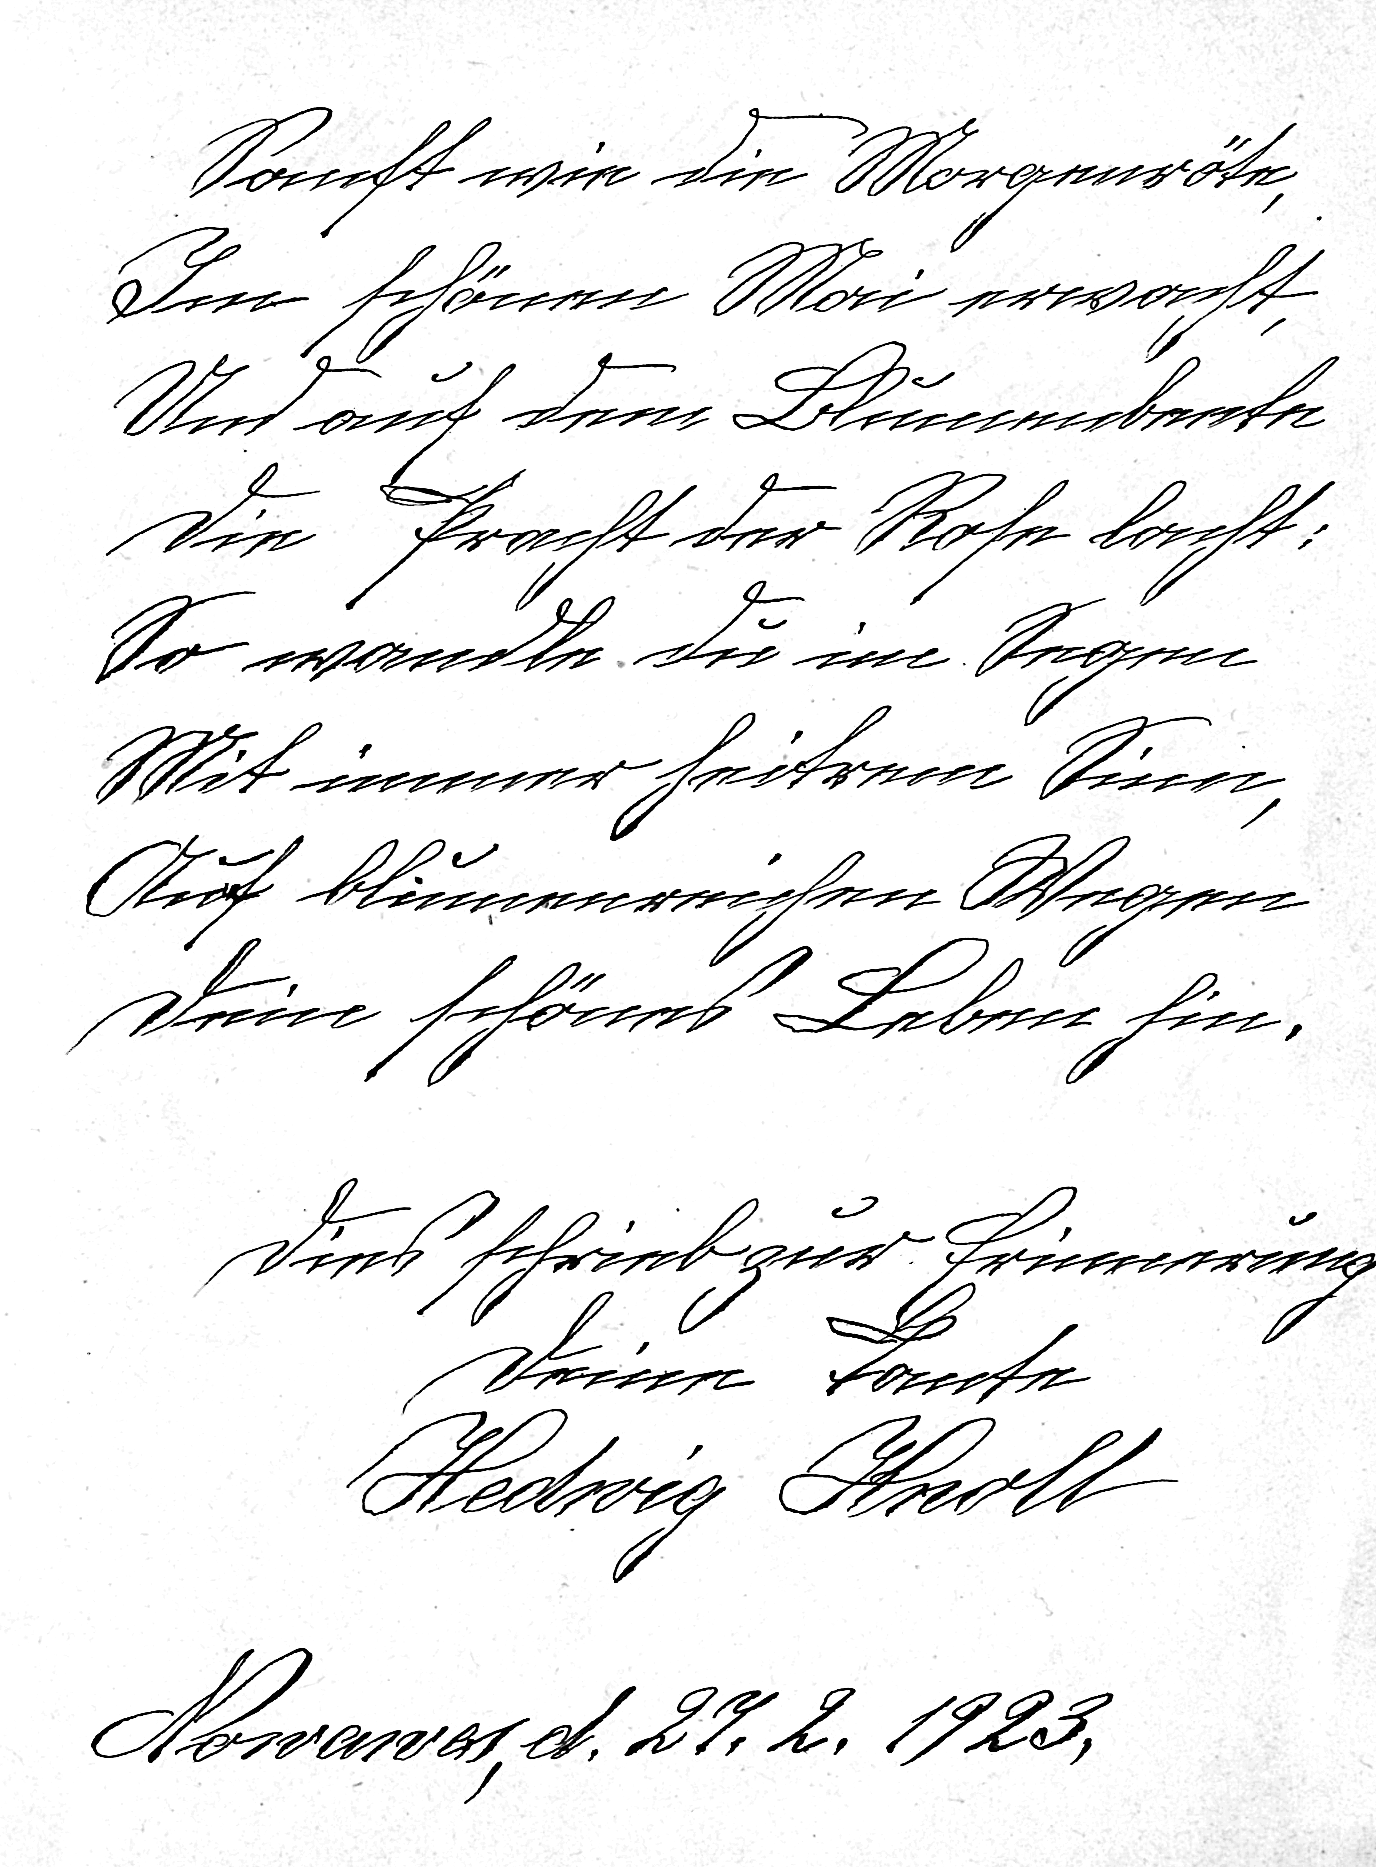 Sanft wie die Morgenröte,
Im schönen Mai erwacht,
Und auf dem Blumenbeete
Die Pracht der Rose lacht:
So wandle du im Segen
Mit immer heitrem Sinn,
Auf blumenreichen Wegen
Dein schönes Leben hin.
Dies schrieb zur Erinnerung
Deine Tante
Hedwig Knoll
Nowawes, d. 27. 2. 1923.